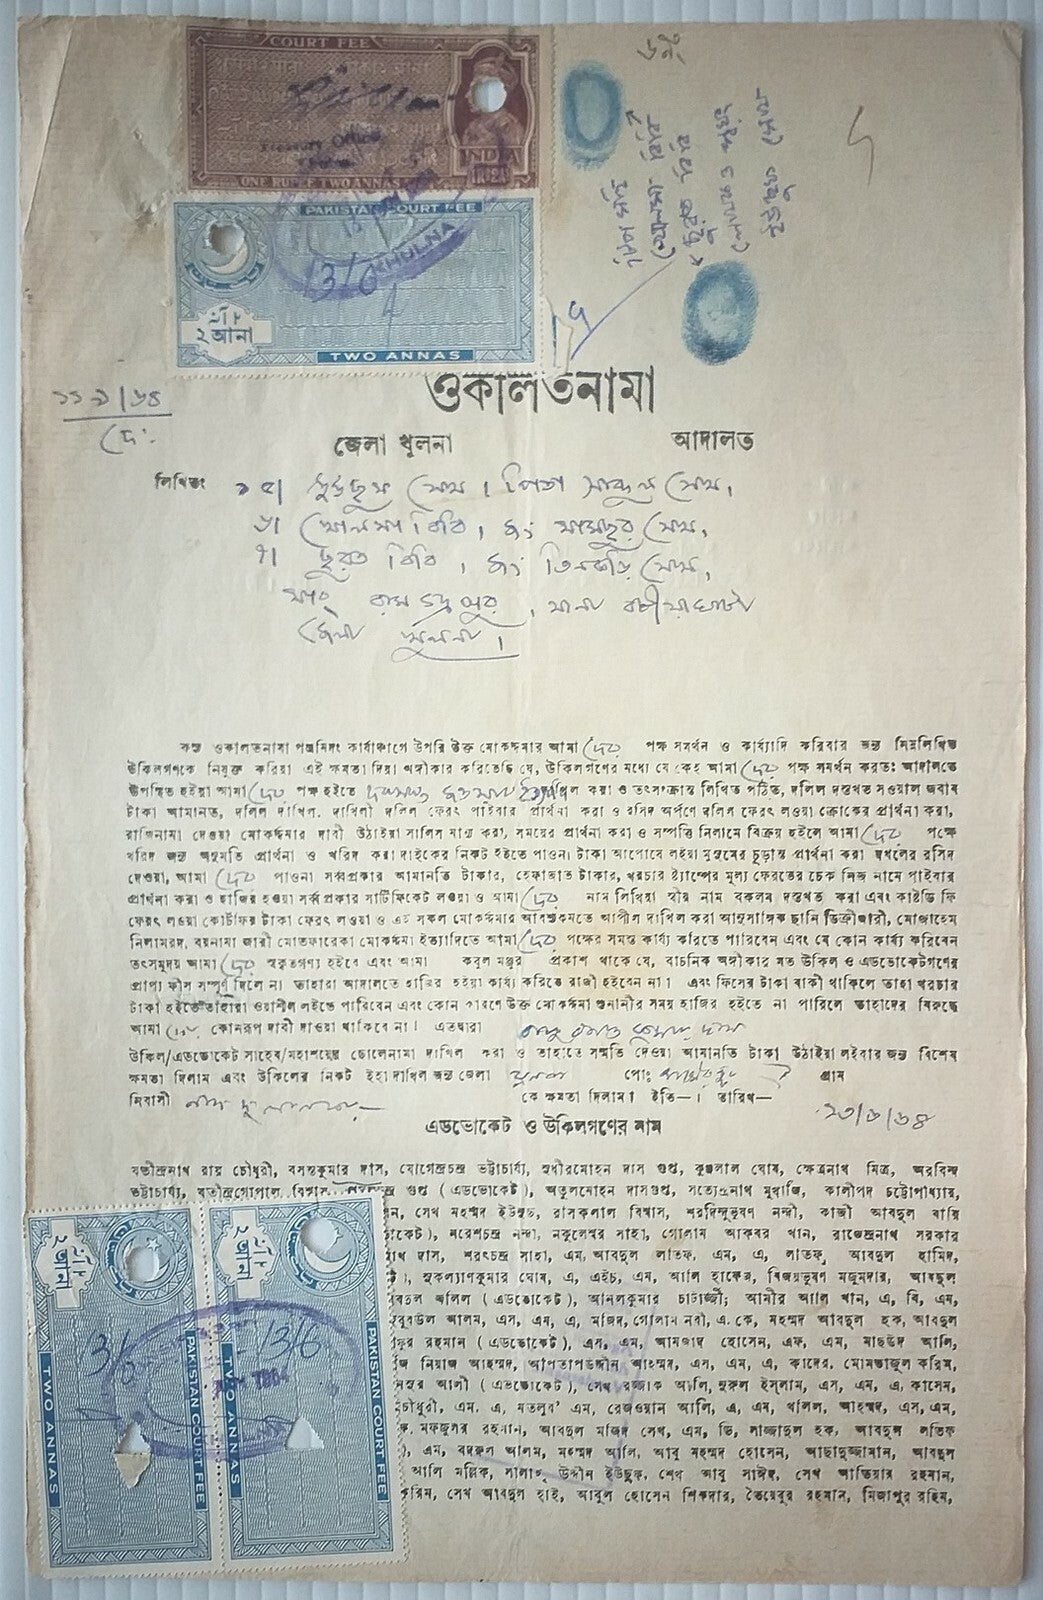 COURT FEE
INDIA
ONE RUPEE TWO ANNAS
Treasury Officer
Khulna
PAKISTAN COURT FEE
KHULNA
13/6
২ আনা
TWO ANNAS
৬নং
ওকালতনামা
১১৯/৬৪
দেং
জেলা খুলনা আদালত
লিখিতং
৬। বিবি, জং শেখ,
৭। ছুরত বিবি, জং তিনকড়ি শেখ,
সাং থানা বটীয়াঘাটা
জেলা খুলনা।
কস্য ওকালতনামা পত্রমিদং কার্য্যাঞ্চাগে উপরি উক্ত মোকদ্দমার আমা দের পক্ষ সমর্থন ও কার্য্যাদি করিবার জন্য নিম্নলিখিত
উকিলগণকে নিযুক্ত করিয়া এই ক্ষমতা দিয়া অঙ্গীকার করিতেছি যে, উকিলগণের মধ্যে যে কেহ আমা দের পক্ষ সমর্থন করতঃ আদালতে
উপস্থিত হইয়া আমা দের পক্ষ হইতে করা ও তৎসংক্রান্ত লিখিত পঠিত, দলিল দস্তখত সওয়াল জবাব
টাকা আমানত, দলিল দাখিল, দাখিলী দলিল ফেরৎ পাইবার প্রার্থনা করা ও রসিদ অর্পণে দলিল ফেরৎ লওয়া ক্রোকের প্রার্থনা করা,
রাজিনামা দেওয়া মোকদ্দমার দাবী উঠাইয়া সালিস মান্য করা, সময়ের প্রার্থনা করা ও সম্পত্তি নিলামে বিক্রয় হইলে আমা দের পক্ষে
খরিদ জন্য অনুমতি প্রার্থনা ও খরিদ করা দাইকের নিকট হইতে পাওনা টাকা আপোষে লইয়া মুকুমের চূড়ান্ত প্রার্থনা করা দখলের রসিদ
দেওয়া, আমা দের পাওনা সর্ব্বপ্রকার আমানতি টাকার, হেফাজাত টাকার, খরচার ষ্ট্যাম্পের মূল্য ফেরতের চেক নিজ নামে পাইবার
প্রার্থনা করা ও হাজির হওয়া সর্ব্ব প্রকার সার্টিফিকেট লওয়া ও আমা দের নাম লিখিয়া স্বীয় নাম বকলম দস্তখত করা এবং কাষ্টডি ফি
ফেরৎ লওয়া কোর্টফির টাকা ফেরৎ লওয়া ও এই সকল মোকর্দ্দমার আবশ্যকমতে আপীল দাখিল করা আনুসাঙ্গিক ছানি ডিক্রীজারী, মোজাহেম
নিলামরদ, বয়নামা জারী মোতফারেকা মোকদ্দমা ইত্যাদিতে আমা দের পক্ষের সমস্ত কার্য্য করিতে পারিবেন এবং যে কোন কার্য্য করিবেন
তৎসমুদয় আমা দের স্বকৃতগণ্য হইবে এবং আমা কবুল মঞ্জুর প্রকাশ থাকে যে, বাচনিক অঙ্গীকার মত উকিল ও এডভোকেটগণের
প্রাপ্য ফীস সম্পূর্ণ দিলে না তাহারা আদালতে হাজির হইয়া কার্য্য করিতে রাজী হইবেন না। এবং ফিসের টাকা বাকী থাকিলে তাহা খরচার
টাকা হইতে তাঁহারা ওয়াশীল লইতে পারিবেন এবং কোন কারণে উক্ত মোকর্দ্দমা শুনানীর সময় হাজির হইতে না পারিলে তাহাদের বিরুদ্ধে
আমা দের কোনরূপ দাবী দাওয়া থাকিবে না। এতদ্বারা বাবু বসন্ত কুমার দাস
উকিল/এডভোকেট সাহেব/মহাশয়ের ছোলেনামা দাখিল করা ও তাহাতে সম্মতি দেওয়া আমানতি টাকা উঠাইয়া লইবার জন্য বিশেষ
ক্ষমতা দিলাম এবং উকিলের নিকট ইহা দাখিল জন্য জেলা খুলনা পোঃ গ্রাম
নিবাসী কে ক্ষমতা দিলাম। ইতি—। তারিখ—
২৩/৬/৬৪
এডভোকেট ও উকিলগণের নাম
যতীন্দ্রনাথ রায় চৌধুরী, বসন্তকুমার দাস, যোগেন্দ্রচন্দ্র ভট্টাচার্য্য, সুধীরমোহন দাস গুপ্ত, কুঞ্জলাল ঘোষ, ক্ষেত্রনাথ মিত্র, অরবিন্দ
ভট্টাচার্য্য, যতীন্দ্রগোপাল বিশ্বাস, গুপ্ত (এডভোকেট), অতুলমোহন দাসগুপ্ত, সত্যেন্দ্রনাথ মুখার্জি, কালীপদ চট্টোপাধ্যায়,
সেখ মহম্মদ ইউসুফ, রাসকলাল বিশ্বাস, শরদিন্দুভূষণ নন্দী, কাজী আবদুল বারি
নরেশচন্দ্র নন্দী, নকুলেশ্বর সাহা, গোলাম আকবর খান, রাজেন্দ্রনাথ সরকার
দাস, শরৎচন্দ্র সাহা, এম, আবদুল লতিফ, এম, এ, লতিফ, আবদুল হামিদ,
সুকল্যাণকুমার ঘোষ, এ, এইচ, এম, আলি হাফেজ, বিজয়ভূষণ মজুমদার, আবদুল
জলিল (এডভোকেট), অনিলকুমার চাটার্জ্জী; আমীর আলি খান, এ, বি, এম,
আলম, এস, এম, এ, মজিদ, গোলাম নবী, এ. কে, মহম্মদ আবদুল হক, আবদুল
রহমান (এডভোকেট), এস, এম, আমজাদ হোসেন, এফ, এম, মাছউদ আলি,
নিয়াজ আহম্মদ, আপতাপউদ্দীন আহম্মদ, এস, এম, এ, কাদের, মোমতাজুল করিম,
আলী (এডভোকেট), সেখ রজ্জাক আলি, নুরুল ইসলাম, এস, এম, এ, কাসেম,
চৌধুরী, এম. এ, মতলুব, এম, রেজওয়ান আলি, এ, এম, খলিল, আহম্মদ, এস, এম,
মফজুলর রহমান, আবদুল মজিদ সেখ, এম, ডি, লাজাদুল হক, আবদুল লতিফ
এম, বদরুল আলম, মহম্মদ আলি, আবু মহম্মদ হোসেন, আছাদুজ্জামান, আবদুল
আলি মল্লিক, সালাহ্ উদ্দীন ইউছুফ, শেখ আবু সাঈদ, সেখ আতিয়ার রহমান,
করিম, সেখ আবদুল হাই, আবুল হোসেন শিকদার, তৈয়েবুর রহমান, মিজাপুর রহিম,
২ আনা
২ আনা
PAKISTAN COURT FEE
TWO ANNAS
PAKISTAN COURT FEE
TWO ANNAS
13/6